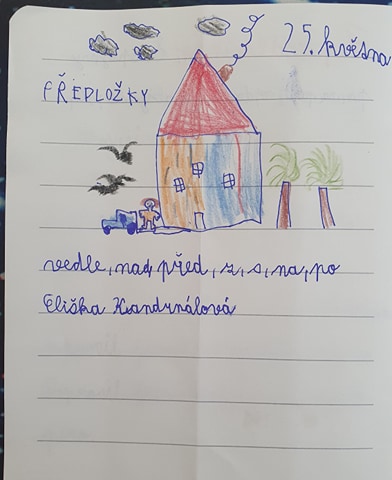 25. května
PŘEDLOŽKY
vedle, nad, před, z, s, na, po
Eliška Kandrnálová